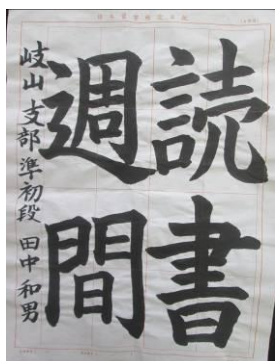 読書
週間
岐山支部準初段 田中和男